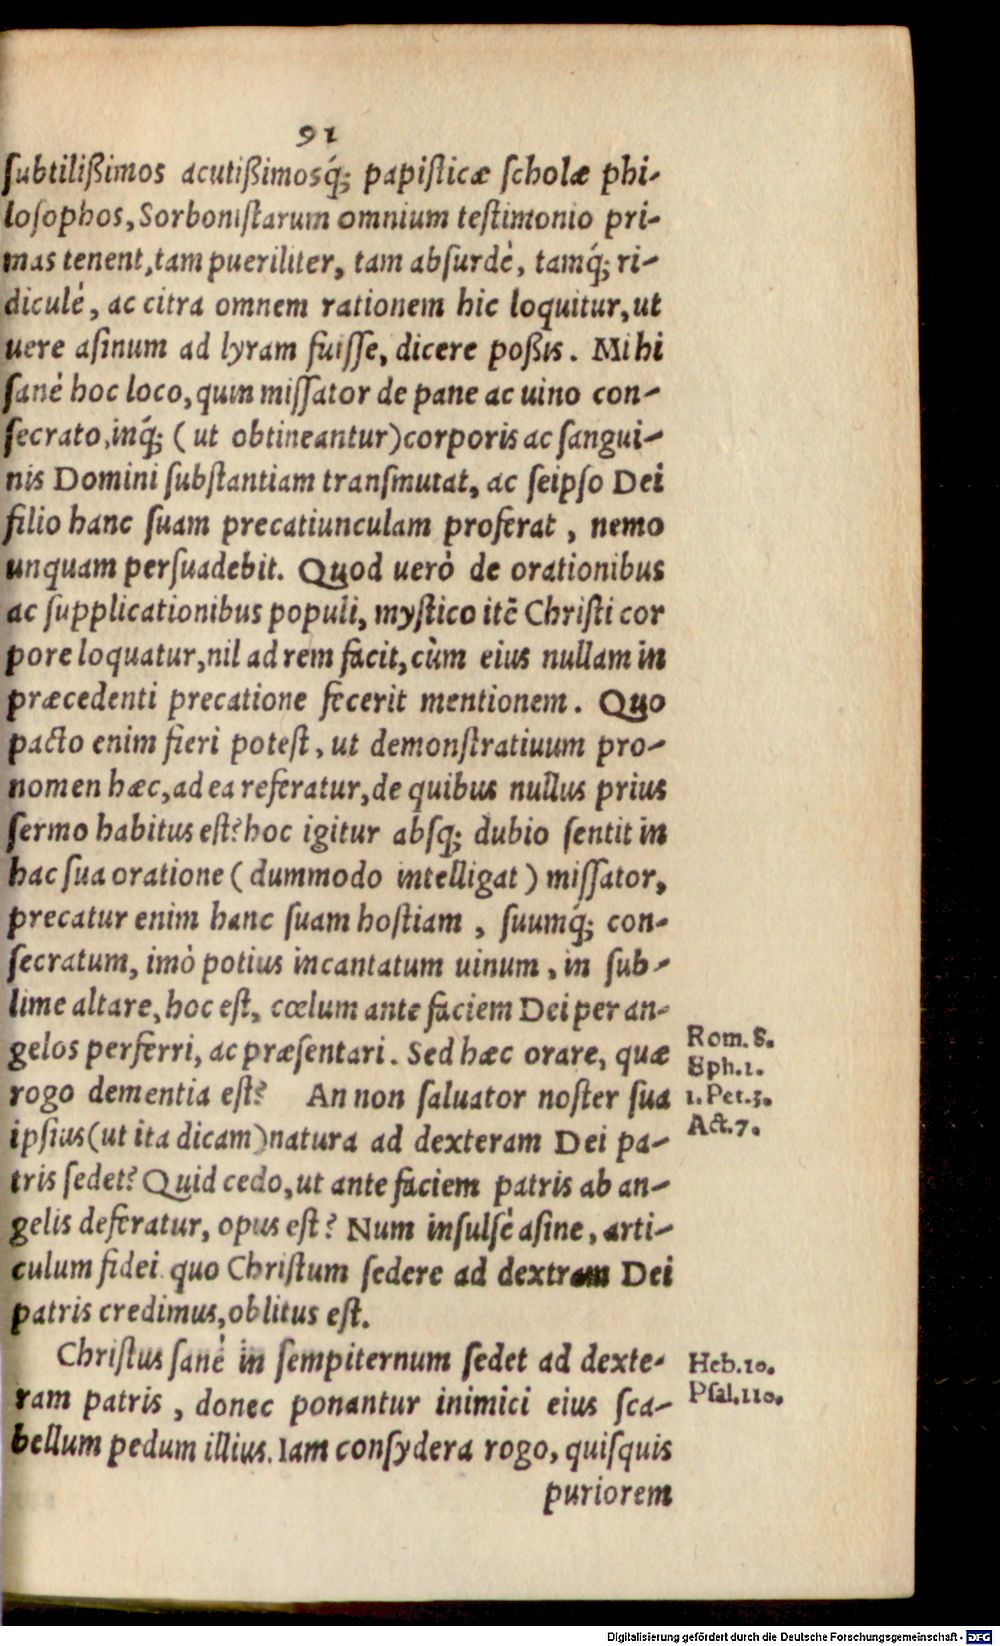 91
subtilißimos acutißimosq́; papisticæ scholæ phi-
losophos, Sorbonistarum omnium testimonio pri-
mas tenent, tam pueriliter, tam absurdè, tamq́; ri-
diculè, ac citra omnem rationem hic loquitur, ut
uere asinum ad lyram fuisse, dicere poßis. Mihi
sanè hoc loco, quin missator de pane ac uino con-
secrato, inq́; (ut obtineantur) corporis ac sangui-
nis Domini substantiam transmutat, ac seipso Dei
filio hanc suam precatiunculam proferat, nemo
unquam persuadebit. Quod uerò de orationibus
ac supplicationibus populi, mystico itē Christi cor
pore loquatur, nil ad rem facit, cùm eius nullam in
præcedenti precatione fecerit mentionem. Quo
pacto enim fieri potest, ut demonstratiuum pro-
nomen hæc, ad ea referatur, de quibus nullus prius
sermo habitus est? hoc igitur absq; dubio sentit in
hac sua oratione (dummodo intelligat) missator,
precatur enim hanc suam hostiam, suumq́; con-
secratum, imò potius incantatum uinum, in sub-
lime altare, hoc est, cœlum ante faciem Dei per an-
gelos perferri, ac præsentari. Sed hæc orare, quæ
rogo dementia est? An non saluator noster sua
ipsius (ut ita dicam) natura ad dexteram Dei pa-
tris sedet? Quid cedo, ut ante faciem patris ab an-
gelis deferatur, opus est? Num insulsè asine, arti-
culum fidei quo Christum sedere ad dextram Dei
patris credimus, oblitus est.
Rom. 8.
Eph. 1.
1. Pet. 3.
Act. 7.
Christus sanè in sempiternum sedet ad dexte-
ram patris, donec ponantur inimici eius sca-
bellum pedum illius. Iam consydera rogo, quisquis
puriorem
Heb. 10.
Psal. 110.
Digitalisierung gefördert durch die Deutsche Forschungsgemeinschaft - DFG